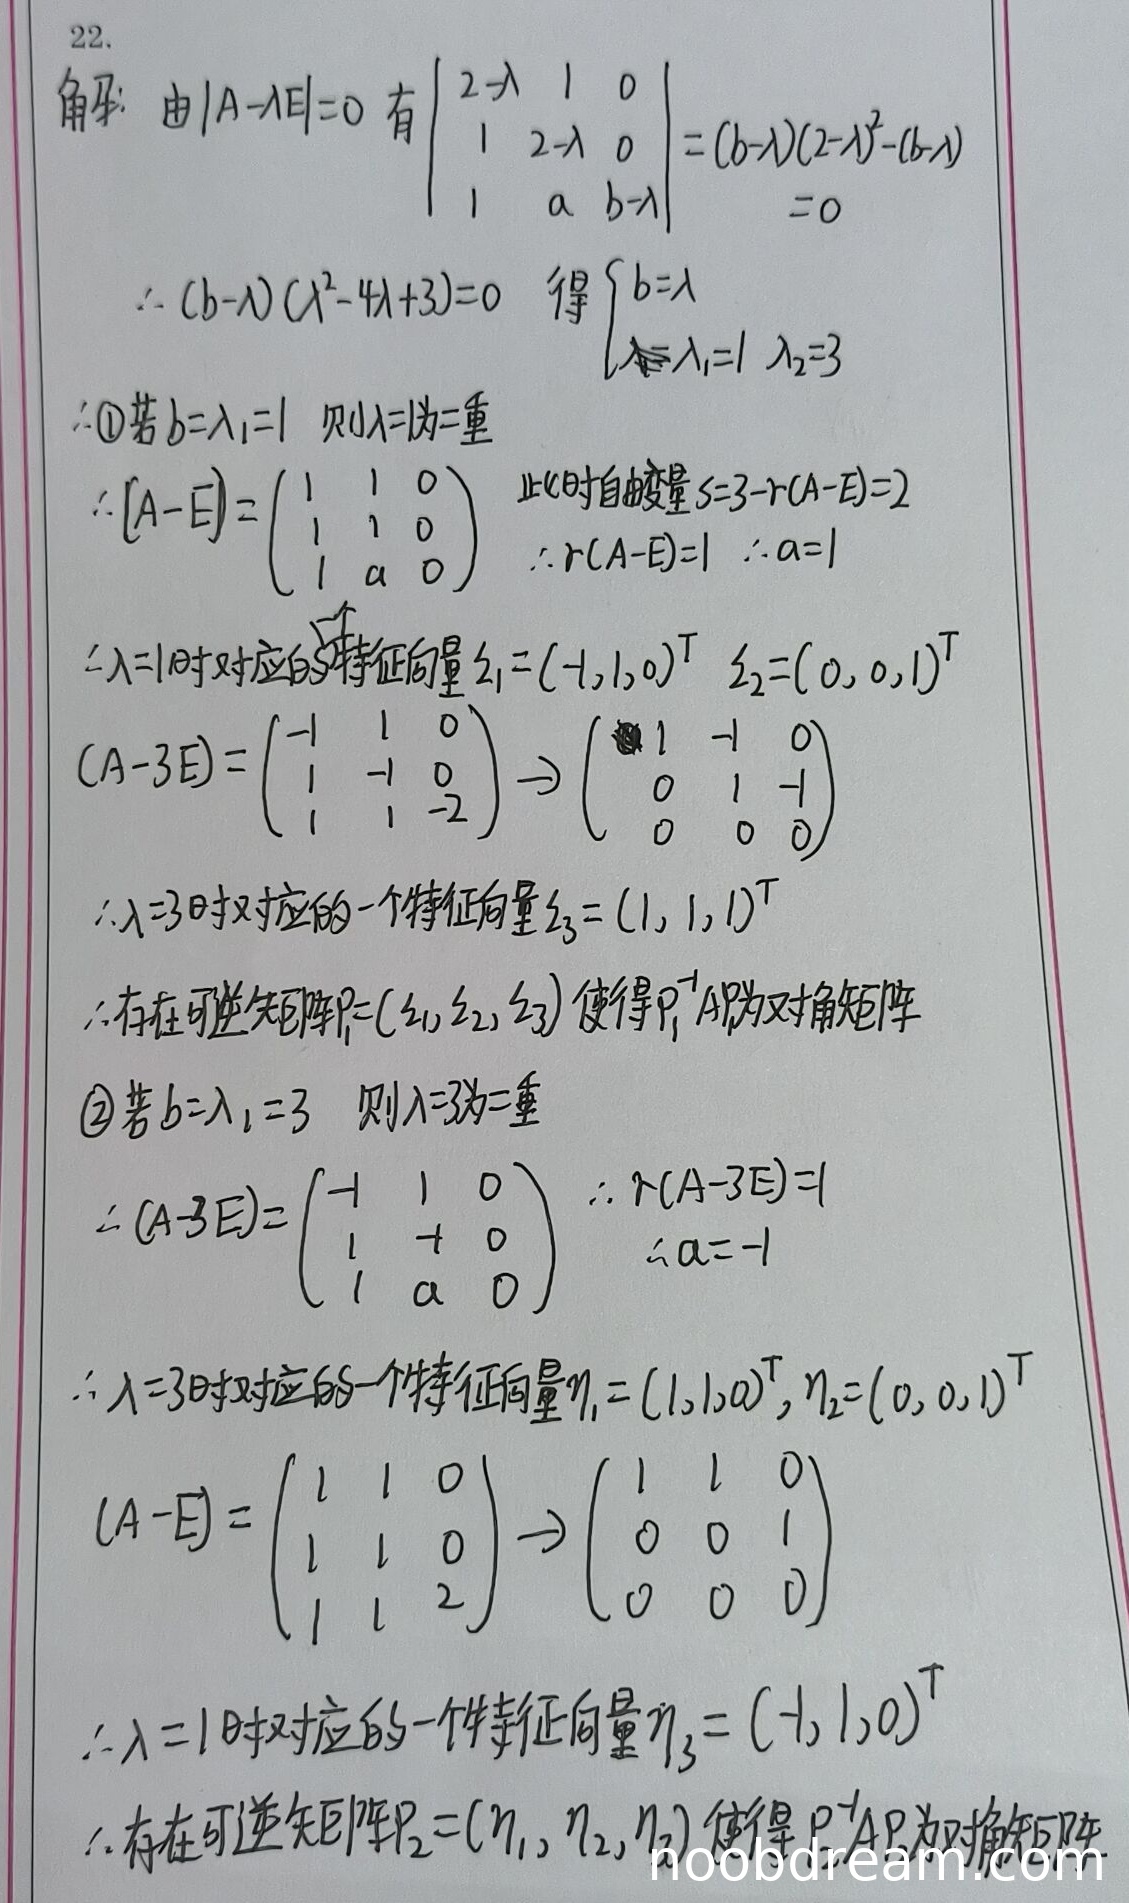 22.
解: 由|A-λE|=0 有 | 2-λ 1 0 |
| 1 2-λ 0 | =(b-λ)(2-λ)²-(b-λ)
| 1 a b-λ | =0
∴(b-λ)(λ²-4λ+3)=0 得 { b=λ
λ₁=1 λ₂=3
∴①若b=λ₁=1 则λ=1为二重
∴[A-E]= ( 1 1 0 ) 此时自由变量s=3-r(A-E)=2
( 1 1 0 )
( 1 a 0 ) ∴r(A-E)=1 ∴a=1
∴λ=1时对应的一个特征向量ξ₁=(-1,1,0)ᵀ ξ₂=(0,0,1)ᵀ
(A-3E)= ( -1 1 0 ) → ( 1 -1 0 )
( 1 -1 0 ) ( 0 1 -1 )
( 1 1 -2 ) ( 0 0 0 )
∴λ=3时对应的一个特征向量ξ₃=(1,1,1)ᵀ
∴存在可逆矩阵P₁=(ξ₁,ξ₂,ξ₃)使得P₁⁻¹AP₁为对角矩阵
②若b=λ₁=3 则λ=3为二重
∴(A-3E)= ( -1 1 0 ) ∴r(A-3E)=1
( 1 -1 0 ) ∴a=-1
( 1 a 0 )
∴λ=3时对应的一个特征向量η₁=(1,1,0)ᵀ,η₂=(0,0,1)ᵀ
(A-E)= ( 1 1 0 ) → ( 1 1 0 )
( 1 1 0 ) ( 0 0 1 )
( 1 1 2 ) ( 0 0 0 )
∴λ=1时对应的一个特征向量η₃=(-1,1,0)ᵀ
∴存在可逆矩阵P₂=(η₁,η₂,η₃)使得P₂⁻¹AP₂为对角矩阵
noobdream.com